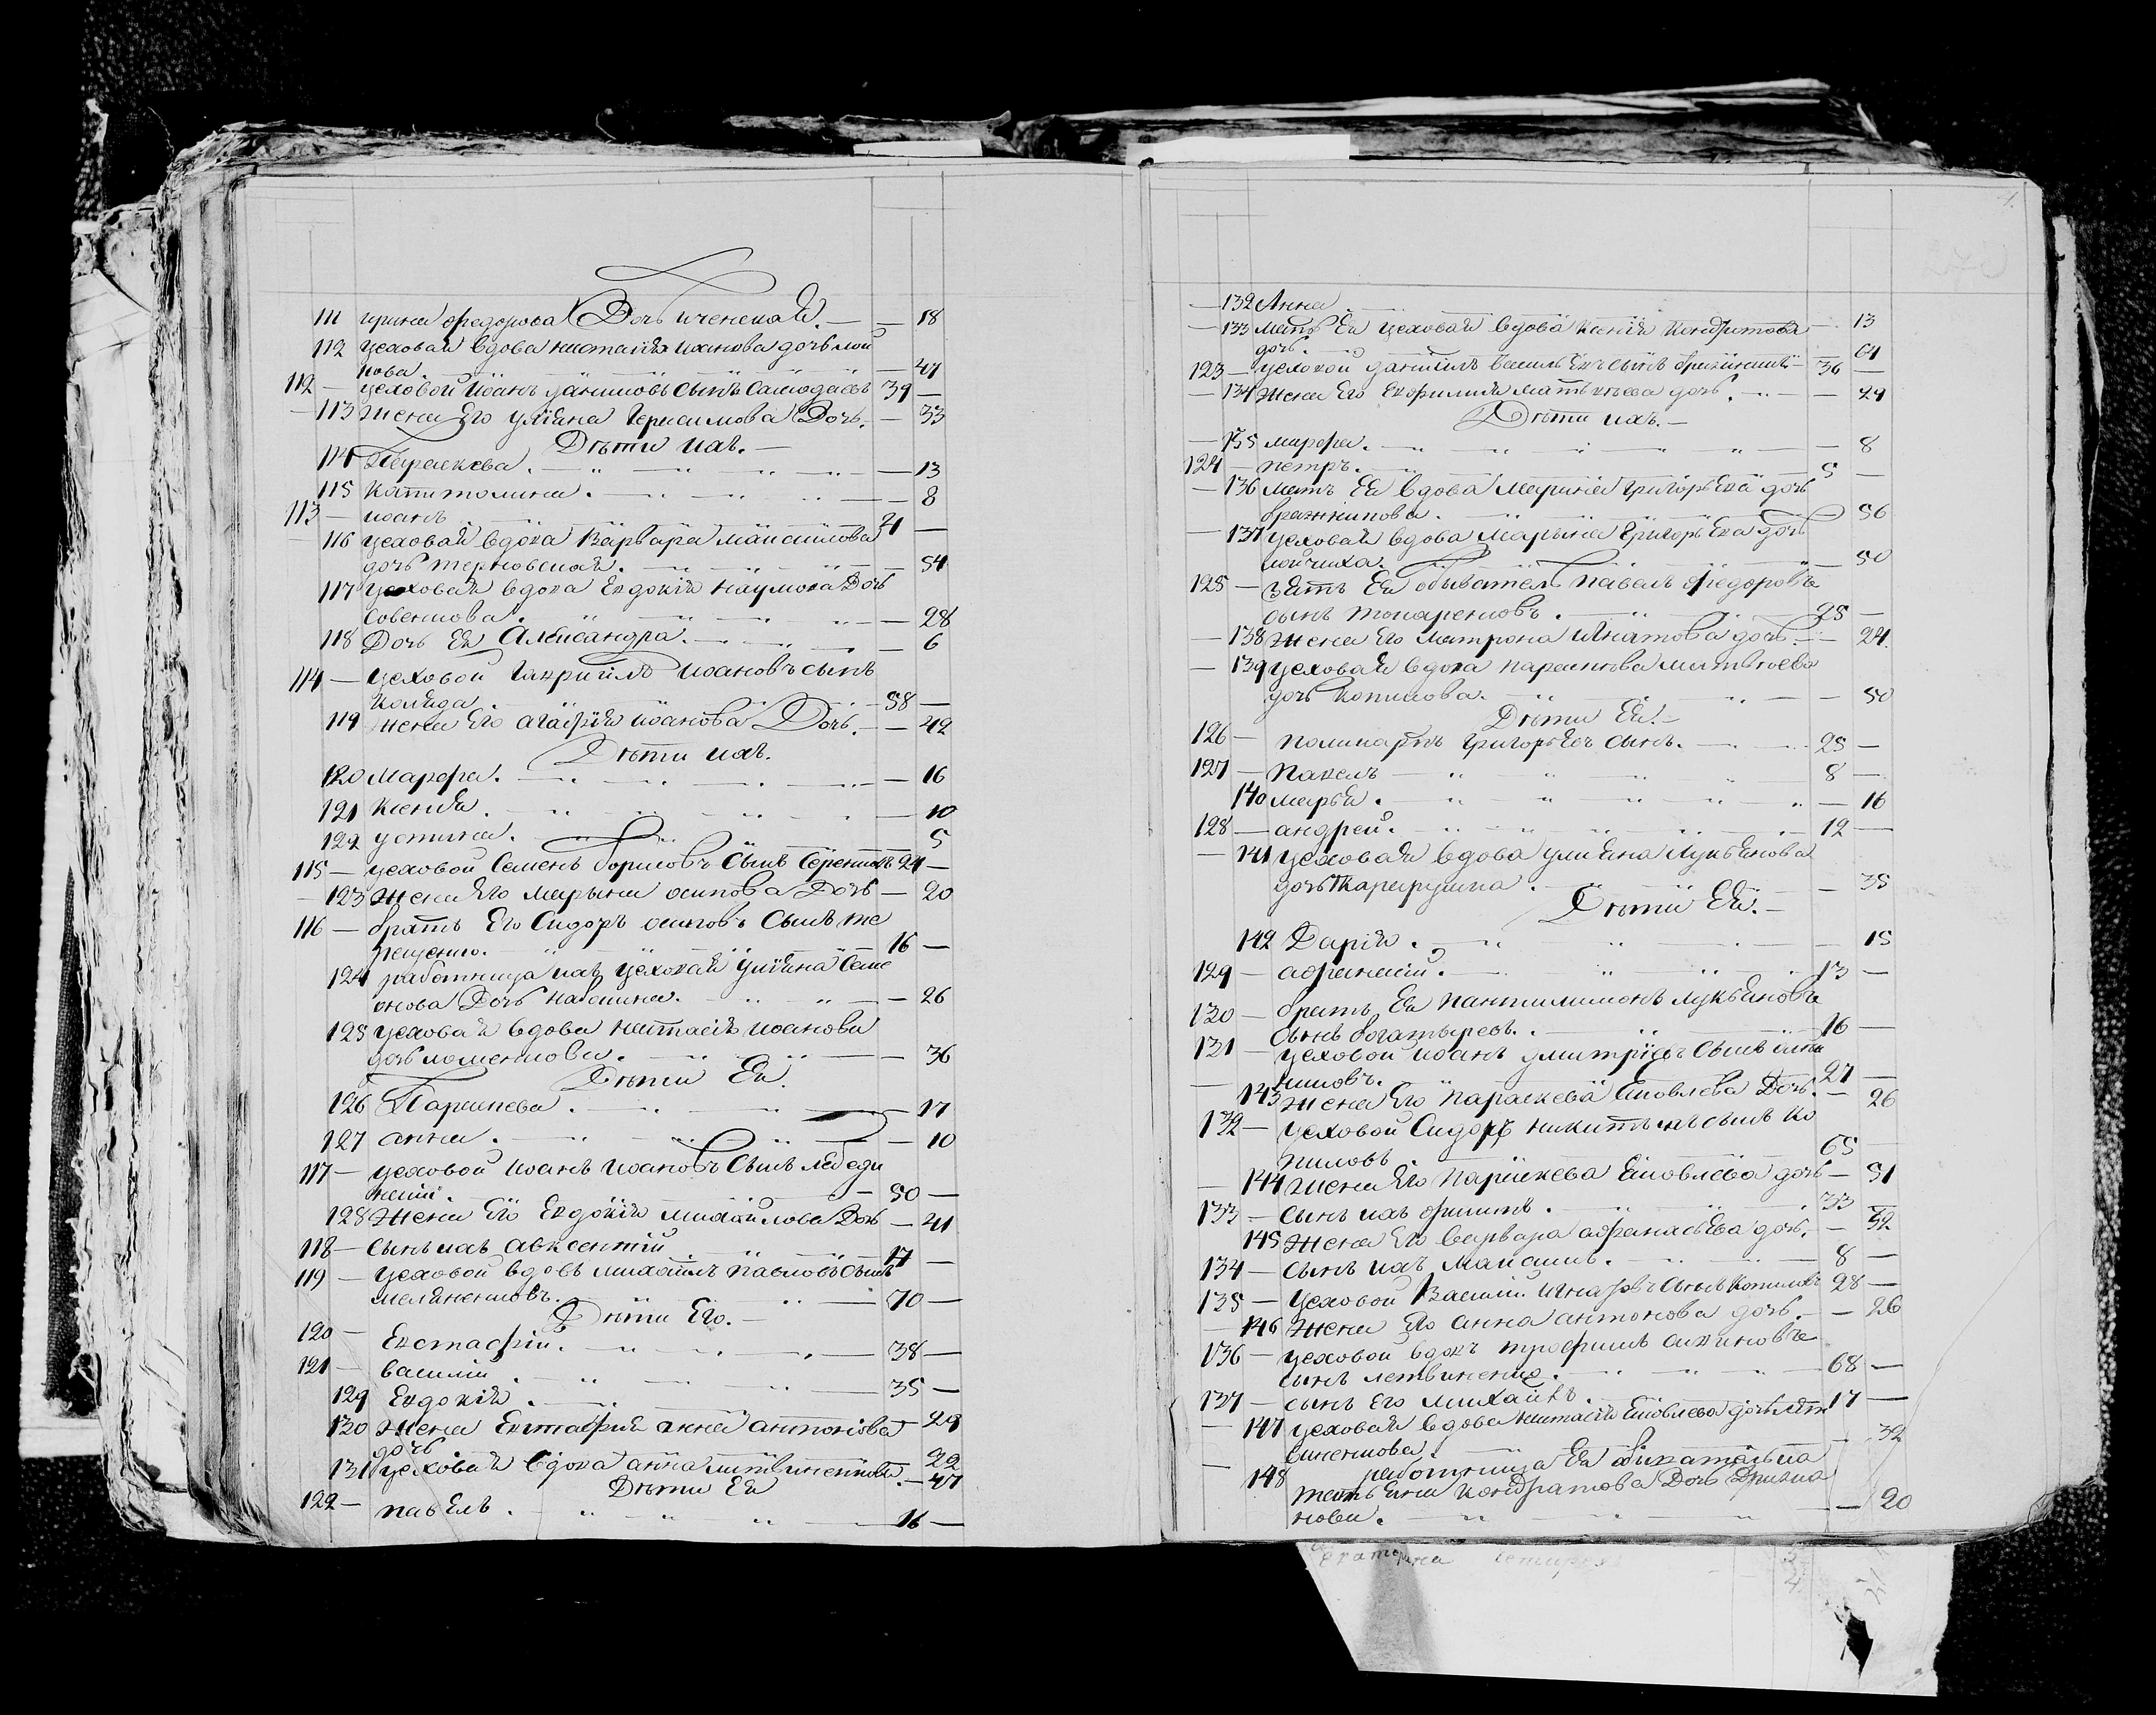 111 ирина федорова Дочь — 18
112 цеховая вдова настасия иванова дочь мои
нова. 47
112 — цеховой Иоанъ даниловъ Сынъ Самодавъ 39 —
— 113 Жена Его улияна Герасимова Дочь. — 33
Дѣти ихъ. —
114 Параскева. — 13
115 Капитолина. — 8
113 — иоанъ 21 —
116 цеховая вдова Варвара максимова
дочь терновская. — 54
117 цеховая вдова Евдокия наумова Дочь
28
118 Дочь Ея Александра. — 6
114 — цеховой Гавриилъ иоановъ сынъ
Коляда. 58 —
119 жена Его агафия иоанова Дочь. — 42
Дѣти ихъ.
120 Марфа. — 16
121 Ксения. — 10
122 устина. 5
115 — цеховой Семенъ борисовъ Сынъ 24 —
— 123 Жена Его марына осипова Дочь — 20
116 — братъ Его Сидоръ осиповъ Сынъ те
рещенко. 16 —
124 работница ихъ цеховая Улияна Семе
онова Дочь — 26
125 цеховая вдова настасия иоанова
дочь — 36
Дѣти Ея.
126 Параскева. — 17
127 анна. — 10
117 — цеховой иоанъ иоановъ Сынъ лебеди
нский. — 50 —
128 Жена Его Евдокия михайлова Дочь — 41
118 — Сынъ ихъ авксентий 17 —
119 — цеховой вдовъ михаилъ павловъ Сынъ
70 —
Дѣти Его. —
120 — Евстафий. 38 —
121 — василий. 35 —
129 Евдокия. — 29
130 Жена Евстафия анна антонова
дочь 22
131 цеховая вдова анна литвиненкова. — 47
Дѣти Ея
122 — павелъ. 16 —
— 132 Анна. 13
— 133 мать Ея цеховая вдова ксения кондратова
дочь. 61
123 — цеховой даниилъ василь Евъ сынъ 36 —
— 134 Жена Его Евфимия матвѣева дочь. — 24
Дѣти ихъ. —
— 135 марфа. — 8
124 — петръ. 5 —
— 136 мать Ея вдова Марина григорьева дочь
бражникова. 56
— 137 цеховая вдова Марына григорьева дочь
50
125 — зять Ея обыватель Павелъ федоровъ
сынъ 25 —
— 138 Жена Его матрона Игнатова дочь. — 24.
— 139 цеховая вдова параскева матвѣева
дочь Копилова. — 50
Дѣти Ея. —
126 — поликарпъ григорьевъ сынъ. 25 —
127 — Павелъ 8 —
140 марья. — 16
128 — андрей. 12 —
— 141 цеховая вдова улияна лукьянова
дочь — 35
Дѣти Ея. —
142 Дария. — 15
129 — афанасий. 13 —
130 — братъ Ея пантилимонъ лукьяновъ
Сынъ богатыревъ. 16 —
131 — цеховой иоанъ дмитриевъ Сынъ
27 —
143 жена Его параскева Яковлева Дочь. — 26
132 — цеховой Сидоръ никитинъ сынъ Ко
пиловъ. 65
— 144 жена Его параскева Яковлева дочь — 51
133 — Сынъ ихъ филипъ. 33 —
145 Жена Его варвара афанасьева дочь. — 32
134 — Сынъ ихъ Максимъ. 8 —
135 — цеховой Василий Сынъ Копиловъ 28 —
— 146 Жена Его анна антонова дочь. — 26
136 — цеховой вдовъ трофимъ
сынъ литвиненко. 68 —
137 — сынъ Его Михаилъ. 17 —
— 147 цеховая вдова настасия Яковлева дочь лит
виненкова. — 32
— 148 работница Ея
кондратова Дочь
нова. — 20